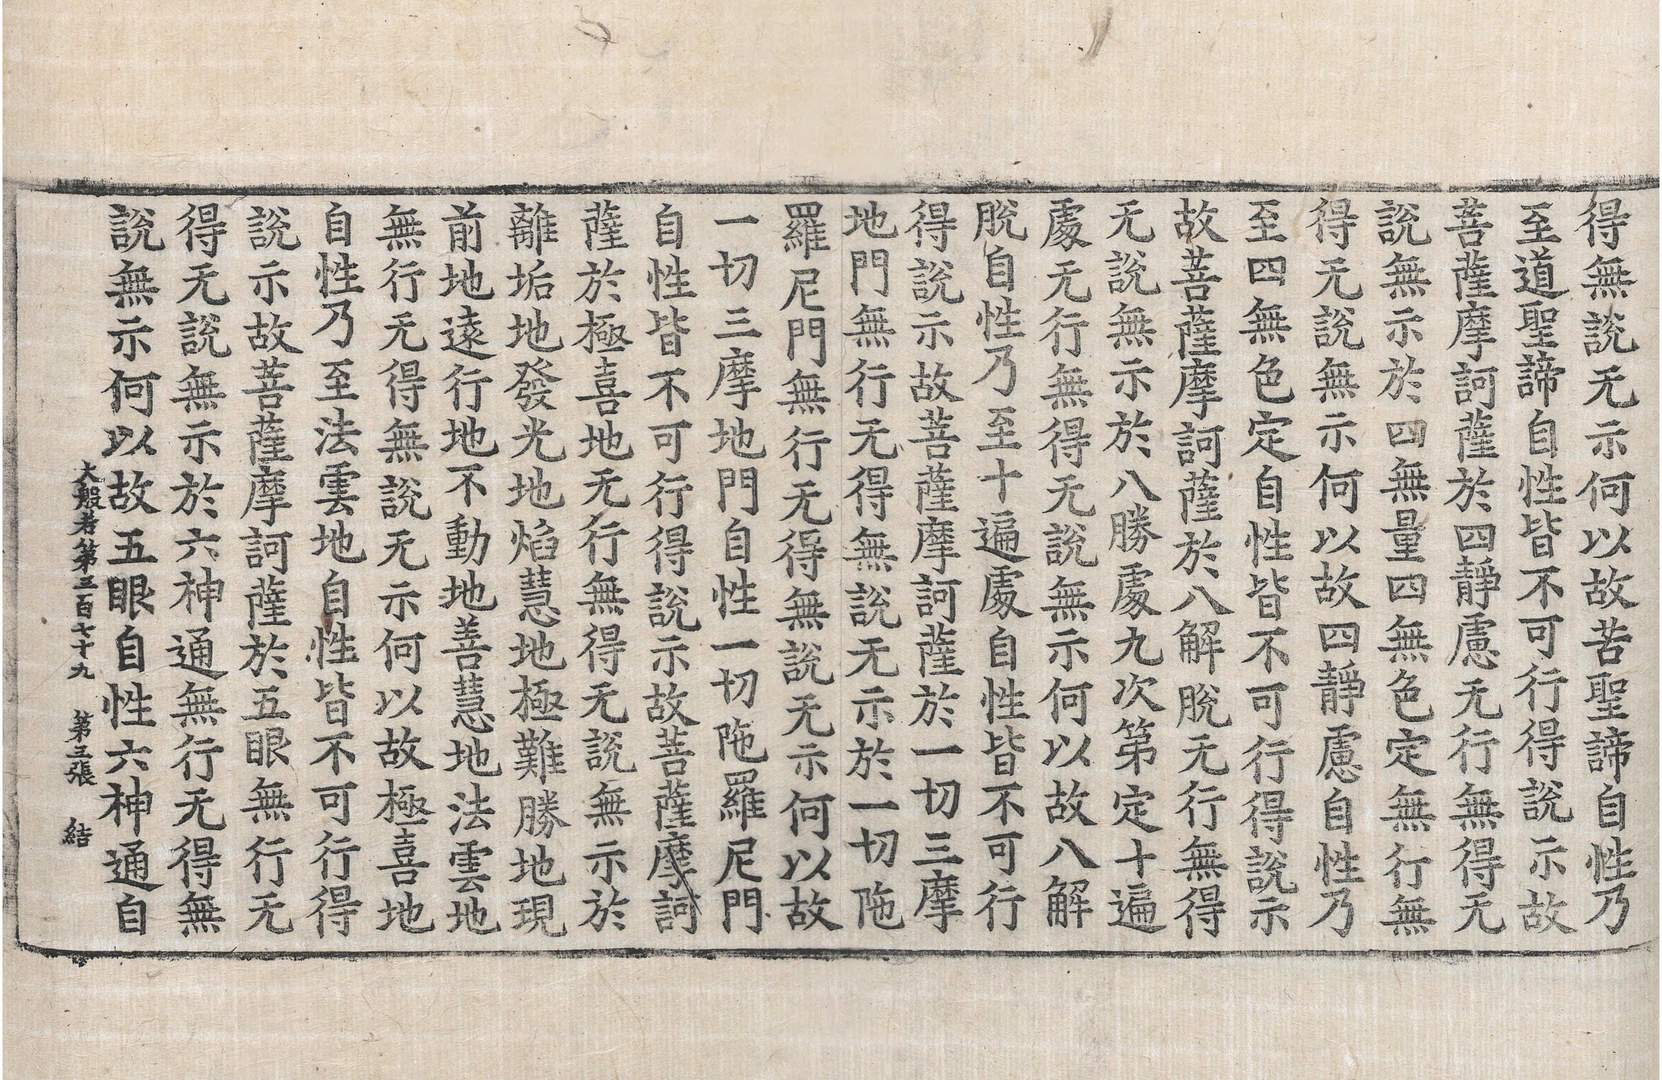 得無說无示何以故苦聖諦自性乃
至道聖諦自性皆不可行得說示故
菩薩摩訶薩於四靜慮无行無得无
說無示於四無量四無色定無行無
得无說無示何以故四靜慮自性乃
至四無色定自性皆不可行得說示
故菩薩摩訶薩於八解脫无行無得
无說無示於八勝處九次第定十遍
處无行無得无說無示何以故八解
脫自性乃至十遍處自性皆不可行
得說示故菩薩摩訶薩於一切三摩
地門無行无得無說无示於一切陁
羅尼門無行无得無說无示何以故
一切三摩地門自性一切陁羅尼門
自性皆不可行得說示故菩薩摩訶
薩於極喜地无行無得无說無示於
離垢地發光地焰慧地極難勝地現
前地遠行地不動地善慧地法雲地
無行无得無說无示何以故極喜地
自性乃至法雲地自性皆不可行得
說示故菩薩摩訶薩於五眼無行无
得无說無示於六神通無行无得無
說無示何以故五眼自性六神通自
大般若第三百七十九 第三張 結